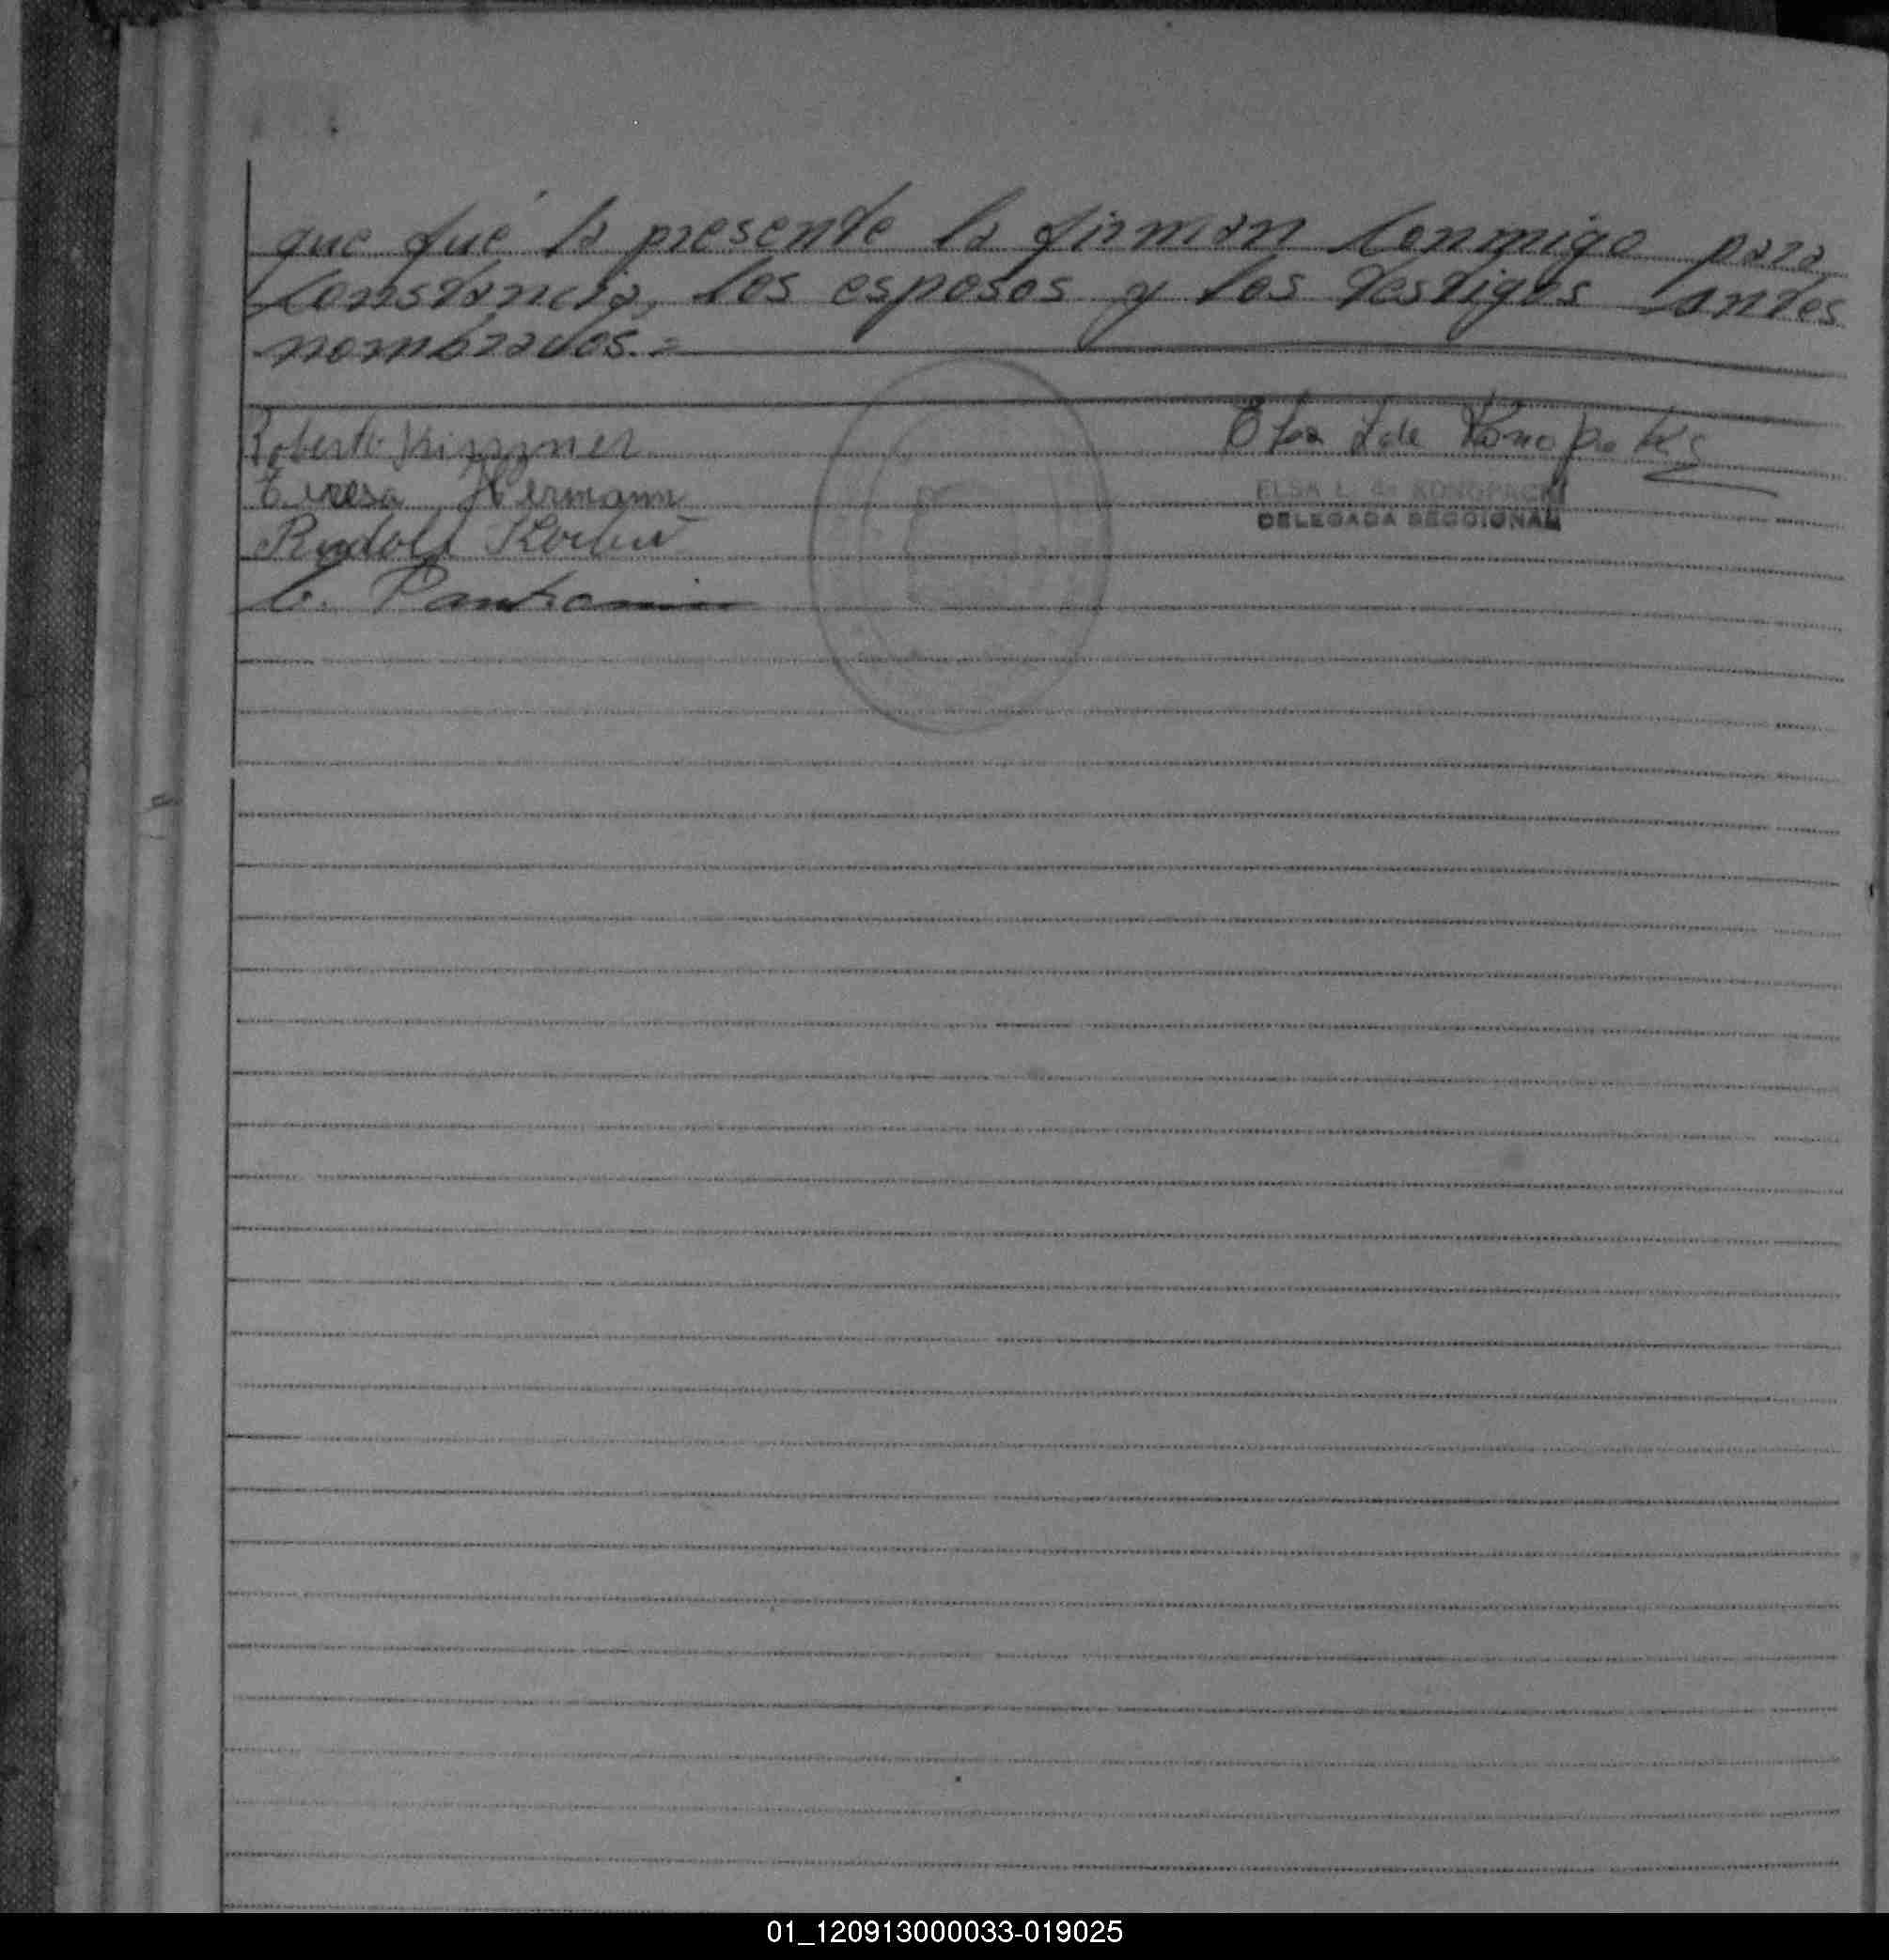 que fué la presente la firman conmigo para
constancia, los esposos y los testigos antes
nombrados.=
Roberto
Elsa L de Konopacki
Teresa Hermann
ELSA L. de KONOPACKI
DELEGADA SECCIONAL
Rudolf
01_120913000033-019025